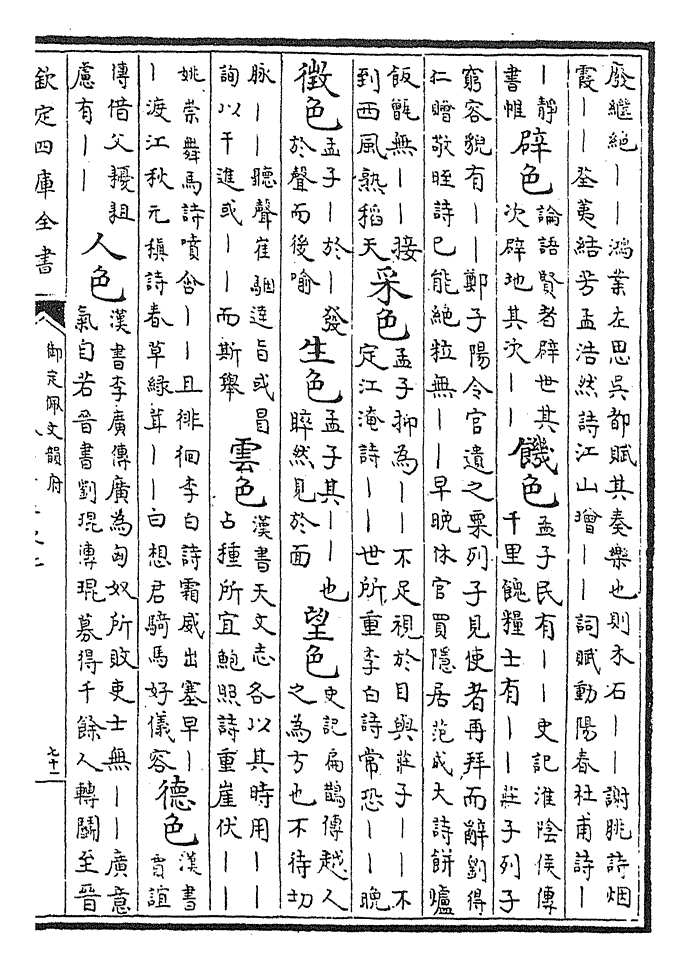 廢繼絶||鴻業左思吳都賦其奏樂也則木石||謝朓詩烟
霞||荃荑結芳孟浩然詩江山增||詞賦動陽春杜甫詩|
|靜
書帷
辟色
論語賢者辟世其
次辟地其次||
饑色
孟子民有||史記淮陰侯傳
千里餽糧士有||莊子列子
窮容貌有||鄭子陽令官遺之粟列子見使者再拜而辭劉得
仁贈敬晊詩已能絶粒無||早晚休官買隱居范成大詩餅爐
飯甑無||接
到西風熟稻天
采色
孟子抑為||不足視於目與莊子||不
定江淹詩||世所重李白詩常恐||晚
徵色
孟子|於|發
於聲而後喻
生色
孟子其||也
睟然見於面
望色
史記扁鵲傳越人
之為方也不待切
脉||聽聲崔駰達旨或冒
詢以干進或||而斯舉
雲色
漢書天文志各以其時用||
占種所宜鮑照詩重崖伏||
姚崇舞馬詩噴含||且徘徊李白詩霜威出塞早|
|渡江秋元稹詩春草綠茸||白想君騎馬好儀容
德色
漢書
賈誼
傳借父耰鉏
慮有||
人色
漢書李廣傳廣為匈奴所敗吏士無||廣意
氣自若晉書劉琨傳琨募得千餘人轉鬭至晉
欽定四庫全書
御定佩文韻府
七十二